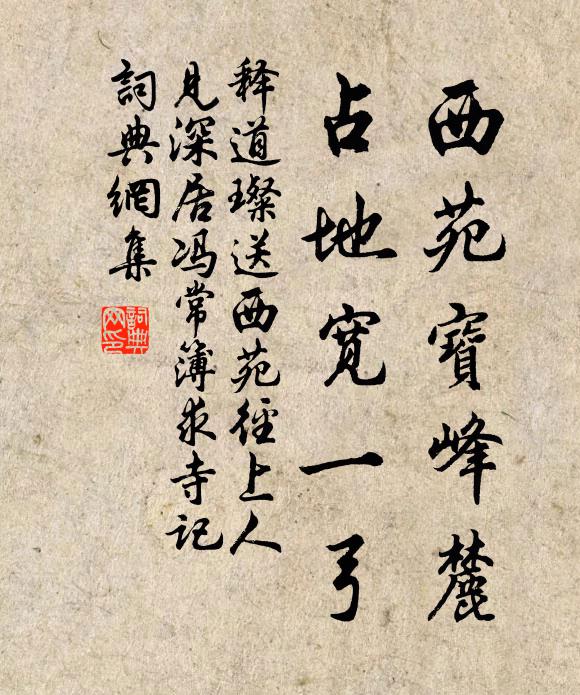 西苑寶峰麓
占地寬一弓
释道璨送西苑徑上人
見深居冯常簿求寺記
詞典網集
詞典
网印